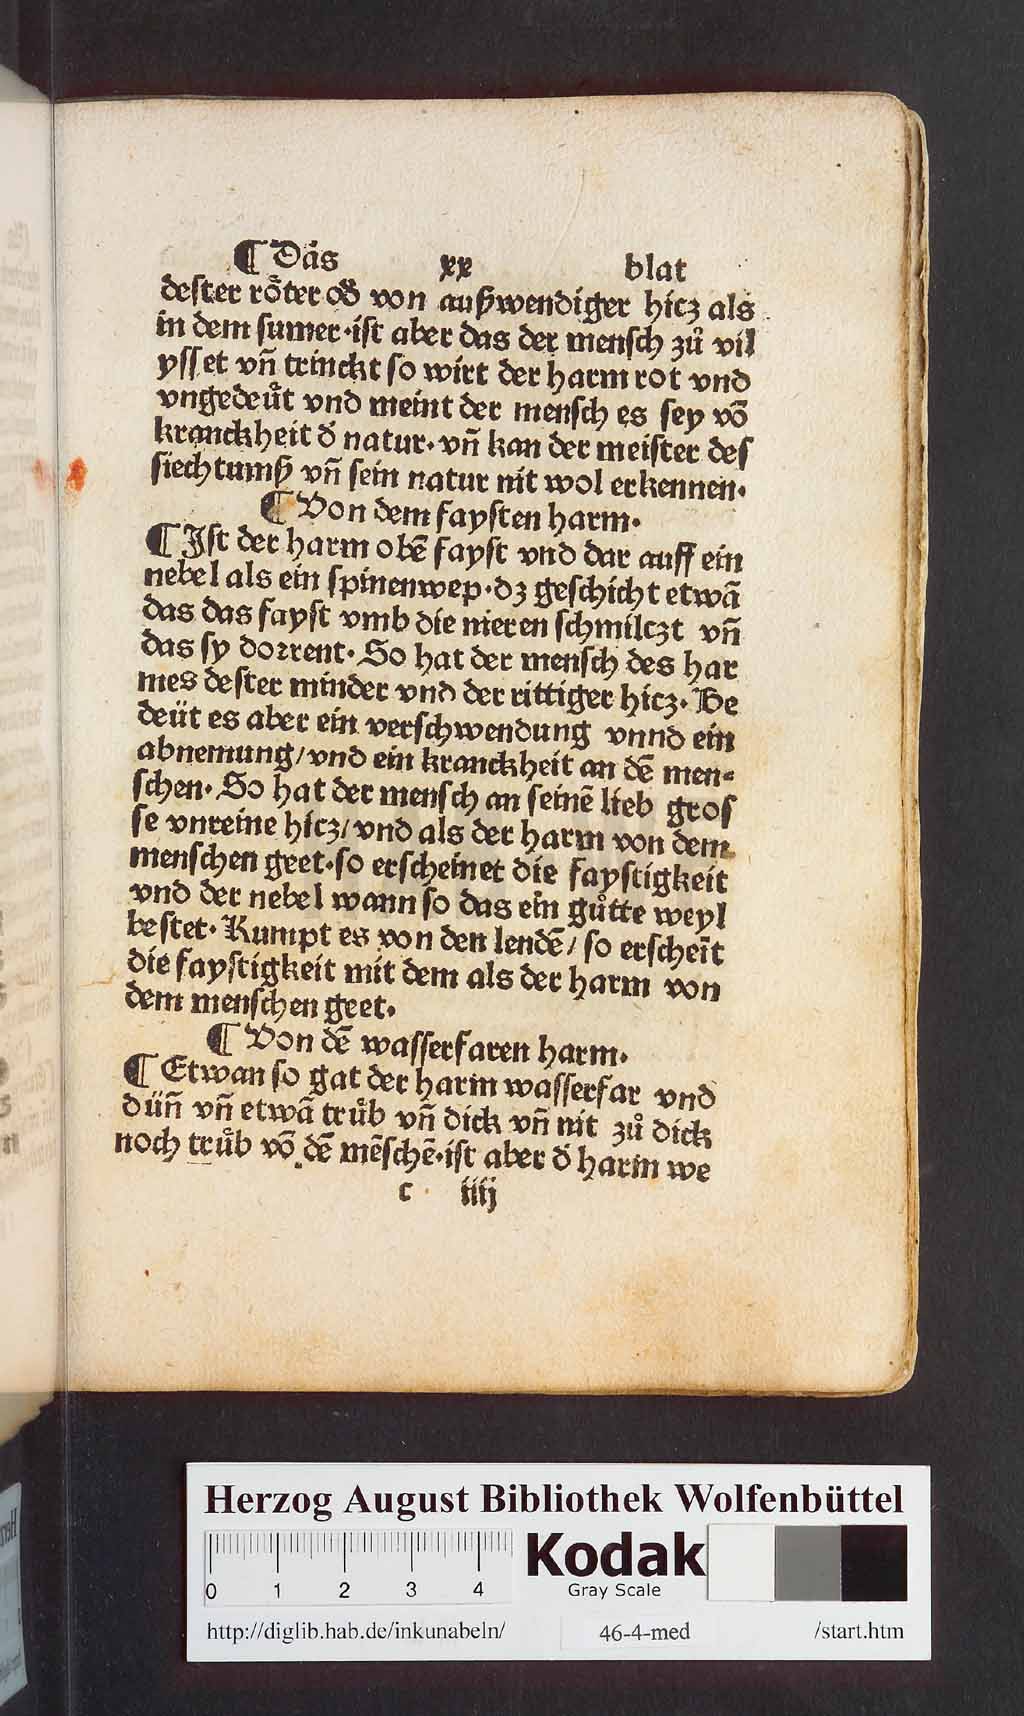 ¶ Das xx blat
deſter roͤter od̕ von auſzwendiger hicz als
in dem ſumer·iſt aber das der menſch zuͦ vil
yſſet vn̄ trinckt ſo wirt der harm rot vnd
vngedeuͤt vnd meint der menſch es ſey vō
kranckheit d̕ natur·vn̄ kan der meiſter des
ſiechtumſz vn̄ ſein natur nit wol erkennen·
¶ Von dem fayſten harm·
¶ Iſt der harm obē fayſt vnd dar auff ein
nebel als ein ſpinenwep·dz geſchicht etwā
das das fayſt vmb die nieren ſchmilczt vn̄
das ſy doꝛrent·So hat der menſch des har
mes deſter minder vnd der rittiger hicz·Be
deüt es aber ein verſchwendung vnnd ein
abnemung/vnd ein kranckheit an dē men⸗
ſchen·So hat der menſch an ſeinē lieb groſ
ſe vnreine hicz/vnd als der harm von dem
menſchen geet·ſo erſcheinet die fayſtigkeit
vnd der nebel wann ſo das ein guͦtte weyl
beſtet·Kumpt es von den lendē/ſo erſchein̄t
die fayſtigkeit mit dem als der harm von
dem menſchen geet·
¶ Von dē waſſerfaren harm·
¶ Etwan ſo gat der harm waſſerfar vnd
dün̄ vn̄ etwā truͤb vn̄ dick vn̄ nit zuͦ dick
noch truͤb vō dē mēſchē·iſt aber d̕ harm we
c iiij
Herzog August Bibliothek Wolfenbüttel
0 1 2 3 4
Kodak
Gray Scale
http://diglib.hab.de/inkunabeln/ 46-4-med /start.htm